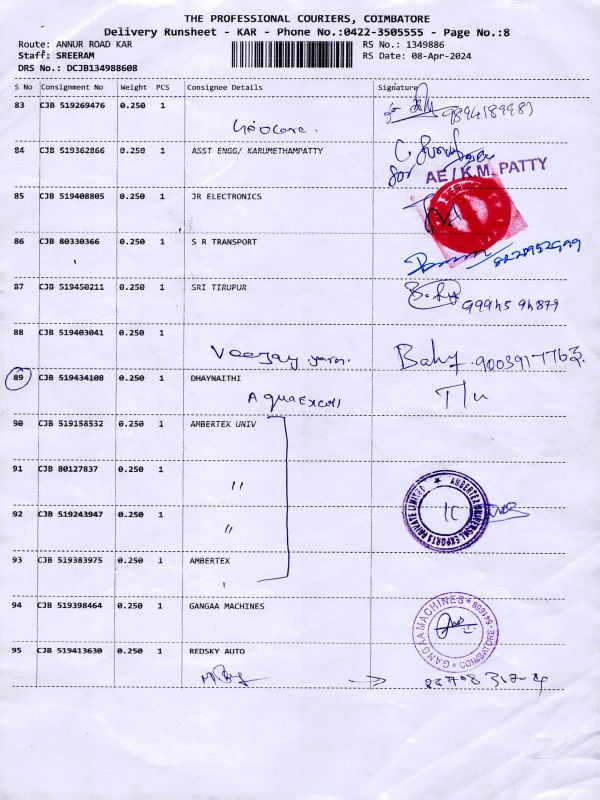 THE PROFESSIONAL COURIERS, COIMBATORE
Delivery Runsheet - KAR - Phone No.:0422-3505555 - Page No.:8
Route: ANNUR ROAD KAR
RS No.: 1349886
Staff: SREERAM
RS Date: 08-Apr-2024
DRS No.: DCJB134988608
S No Consignment No Weight PCS Consignee Details Signature
83 CJB 519269476 0.250 1
9894189989
84 CJB 519362866 0.250 1 ASST ENGG/ KARUMETHAMPATTY
for AE / K.M. PATTY
85 CJB 519408805 0.250 1 JR ELECTRONICS
86 CJB 80330366 0.250 1 S R TRANSPORT
87 CJB 519450211 0.250 1 SRI TIRUPUR
99945 94879
88 CJB 519403041 0.250 1
Veejay yarn. Baby. 9003917763
89 CJB 519434108 0.250 1 DHAYNAITHI
Aqua Excell
90 CJB 519158532 0.250 1 AMBERTEX UNIV
91 CJB 80127837 0.250 1
"
92 CJB 519243947 0.250 1
"
AMBERTEX UNIVERSAL EXPORTS PRIVATE LIMITED
93 CJB 519383975 0.250 1 AMBERTEX
94 CJB 519398464 0.250 1 GANGAA MACHINES
GANGAA MACHINES COIMBATORE-641659
95 CJB 519413630 0.250 1 REDSKY AUTO